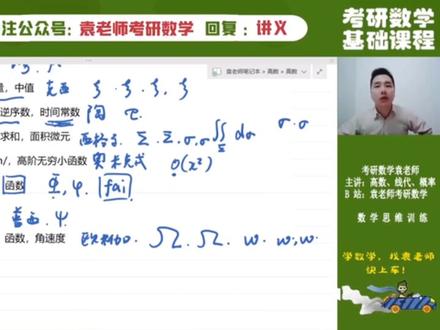 注公众号: 袁老师考研数学 回复 : 讲义
考研数学
基础课程
袁老师笔记本 > 高数 > 高数
量, 中值 克西 ξ · ξ · ξ, ξ
逆序数, 时间常数 陶 τ.
求和, 面积微元 西格马 Σ. Σ. σ. σ ∬ dσ σ. σ
n/, 高阶无穷小函数 奥米克戎 o(x²)
函数 Φ, φ. fai
普西. ψ
函数, 角速度 欧米伽. Ω. Ω. w. w, w.
考研数学袁老师
主讲: 高数、线代、概率
B 站: 袁老师考研数学
数学思维训练
学数学, 找袁老师
快上车!